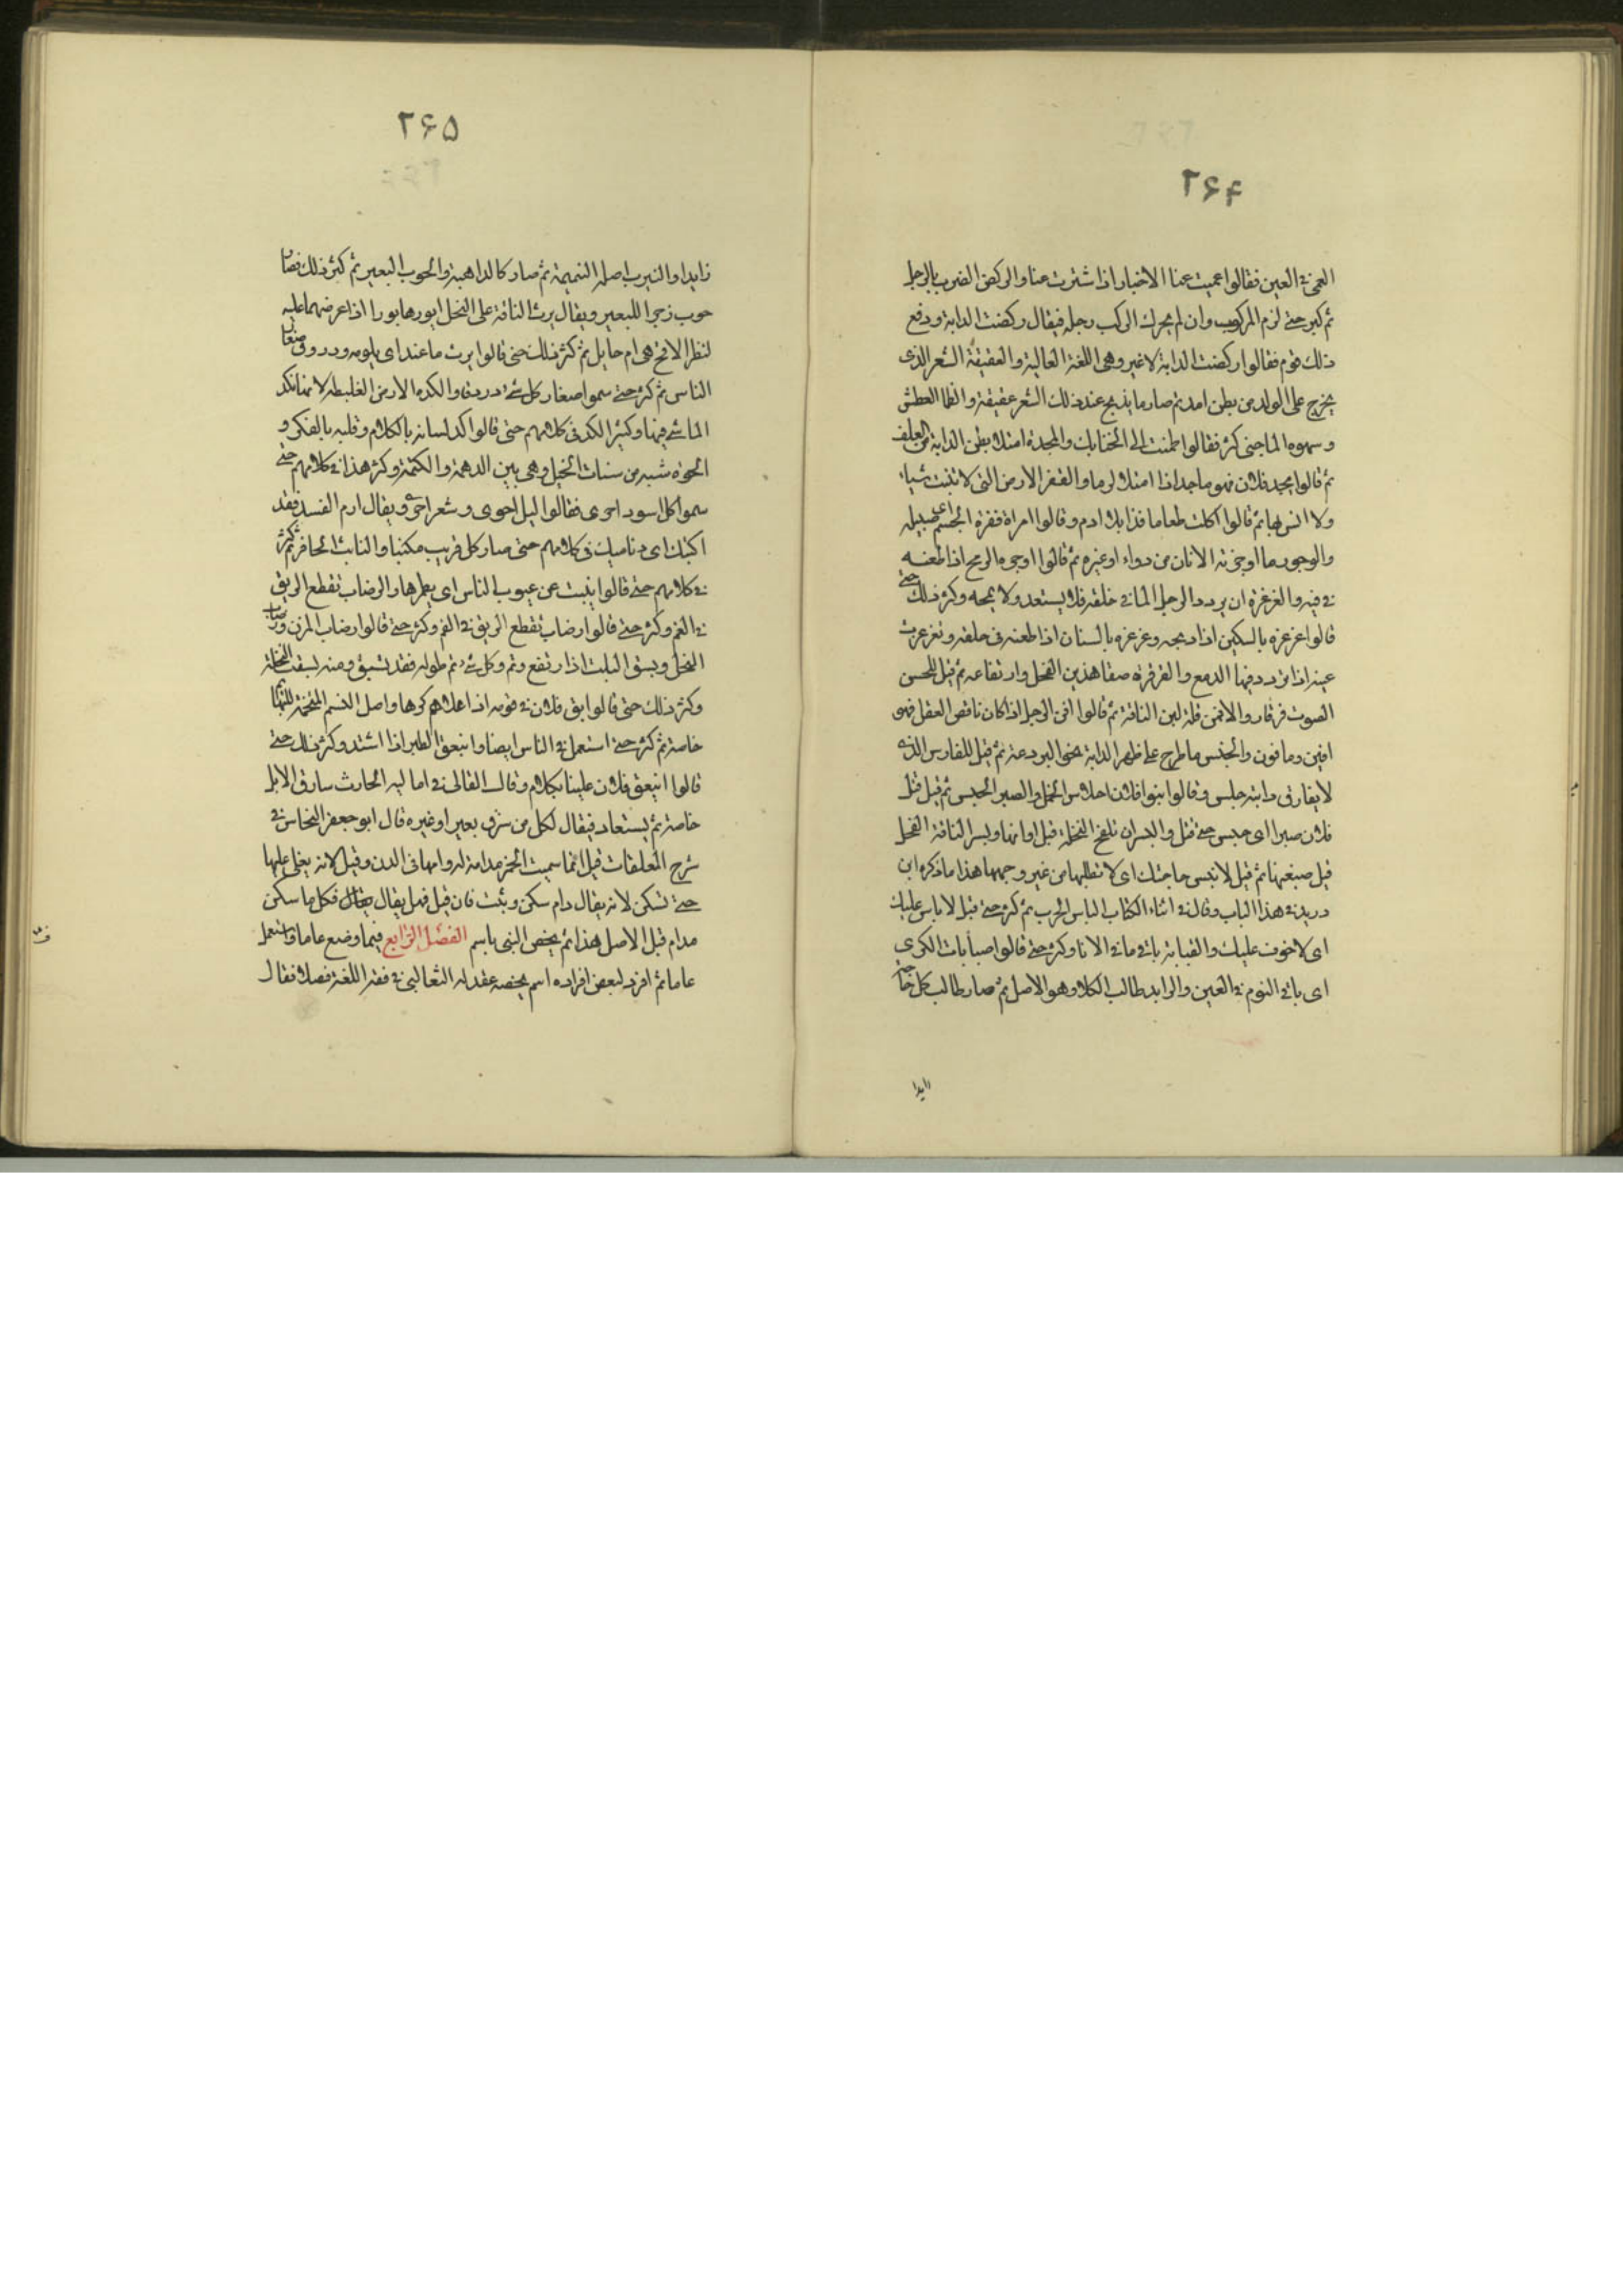 ۲۶۴
العمى في العين فقالوا عميت عنا الاخبار اذا سترت عنا والركض الضرب بالرجل
ثم كثر حتى لزم المركوب وان لم يحرك الراكب رجله فيقال ركضت الدابة ودفع
ذلك قوم فقالوا ركضت الدابة لا غير وهى اللغة العالية والعقيقة الشعر الذى
يخرج على الولد من بطن امه ثم صار ما يذبح عند ذلك الشعر عقيقة والظما العطش
وشهوة الما حتى كثر فقالوا ظمئت الى لقايك والمجد امتلا بطن الدابة من العلف
ثم قالوا مجد فلان فهو ماجد اذا امتلا كرما والقفر الارض التى لا تنبت شياء
ولا انس بها ثم قالوا اكلت طعاما قفرا بلا ادم وقالوا امراة قفرة الجسم اى ضييله
والوجور ما اوجرته الانسان من دواء او غيره ثم قالوا اوجره الرمح اذا طعنه
في فيه والغرغرة ان يردد الرجل الما في حلقه فلا يسيغه ولا يمجه وكثر ذلك حتى
قالوا غرغره بالسكين اذا ذبحه وغرغره بالسنان اذا طعنه فى حلقه وتغرغرت
عينه اذا تردد فيها الدمع والقرقرة صفا هدير الفحل وارتفاعه ثم قيل للحسن
الصوت قرقار والافن قلة لبن الناقة ثم قالوا افن الرجل اذا كان ناقص العقل فهو
افين ومافون والحلس ما طرح على ظهر الدابة نحو البرذعة ثم قيل للفارس الذى
لا يفارق دابته حلس وقالوا بنو فلان احلاس الخيل والصبر الحبس ثم قيل قتل
فلان صبرا اى حبس حتى قتل والبسر ان تلقح النخلة قبل اوانها وبسر الناقة الفحل
قبل ضبعتها ثم قيل لا تبسر حاجتك اى لا تطلبها من غير وجهها هذا ما ذكره ابن
دريد في هذا الباب وقال في اثناء الكتاب الباس الحرب ثم كثر حتى قيل لا باس عليك
اى لا خوف عليك والصبابة باقى ما في الانا وكثر حتى قالوا صبابات الكرى
اى باقى النوم في العين والرايد طالب الكلا وهو الاصل ثم صار طالب كل حاجة
رايدا
۲۶۵
رايدا والنيرب اصله النميمة ثم صار كالداهية والحوب البعير ثم كثر ذلك فصار
حوب زجرا للبعير ويقال برت الناقة على الفحل ابورها بورا اذا عرضتها عليه
لتنظر الاقح هى ام حايل ثم كثر ذلك حتى قالوا برت ما عندك اى بلوته ودردق صغار
الناس ثم كثر حتى سموا صغار كل شى دردقا والكدية الارض الغليظة لانها تكد
الماشى فيها وكثر الكد فى كلامهم حتى قالوا كد لسانه بالكلام وقلبه بالفكر و
الحوة شية من شيات الخيل وهى بين الدهمة والكمتة وكثر هذا في كلامهم حتى
سموا كل اسود احوى فقالوا ليل احوى وشعر احوى ويقال ارم الصيد فقد
اكثبك اى دنا منك فى كلامهم حتى صار كل قريب مكثبا والنابث الحافر ثم كثر
في كلامهم حتى قالوا ينبث عن عيوب الناس اى يظهرها والرضاب تقطع الريق
في الفم وكثر حتى قالوا رضاب المزن ورضاب
النحل وبسق النبت اذا ارتفع وتم وكل شى تم طوله فقد بسق ومنه بسقت النخلة
وكثر ذلك حتى قالوا بسق فلان في قومه اذا علاهم كرما
خاصة ثم كثر حتى استعمل في الناس ايضا وانبعق المطر اذا اشتد وكثر ذلك حتى
قالوا انبعق فلان علينا بكلام وقال القالى في اماليه الخارب سارق الابل
خاصة ثم يستعار فيقال لكل من سرق بعيرا او غيره قال ابو جعفر النحاس في
شرح المعلقات قيل انما سميت الخمر مدامة لدوامها فى الدن وقيل لانه يغلى عليها
حتى تسكن لانه يقال دام سكن وثبت فان قيل فهل يقال فكل ما سكن
مدام قيل الاصل هذا ثم يخص الشى باسم الفصل الرابع فيما وضع عاما واستعمل
عاما ثم افرد لبعض افراده اسم يخصه عقد له الثعالبى في فقه اللغة فصلا فقال